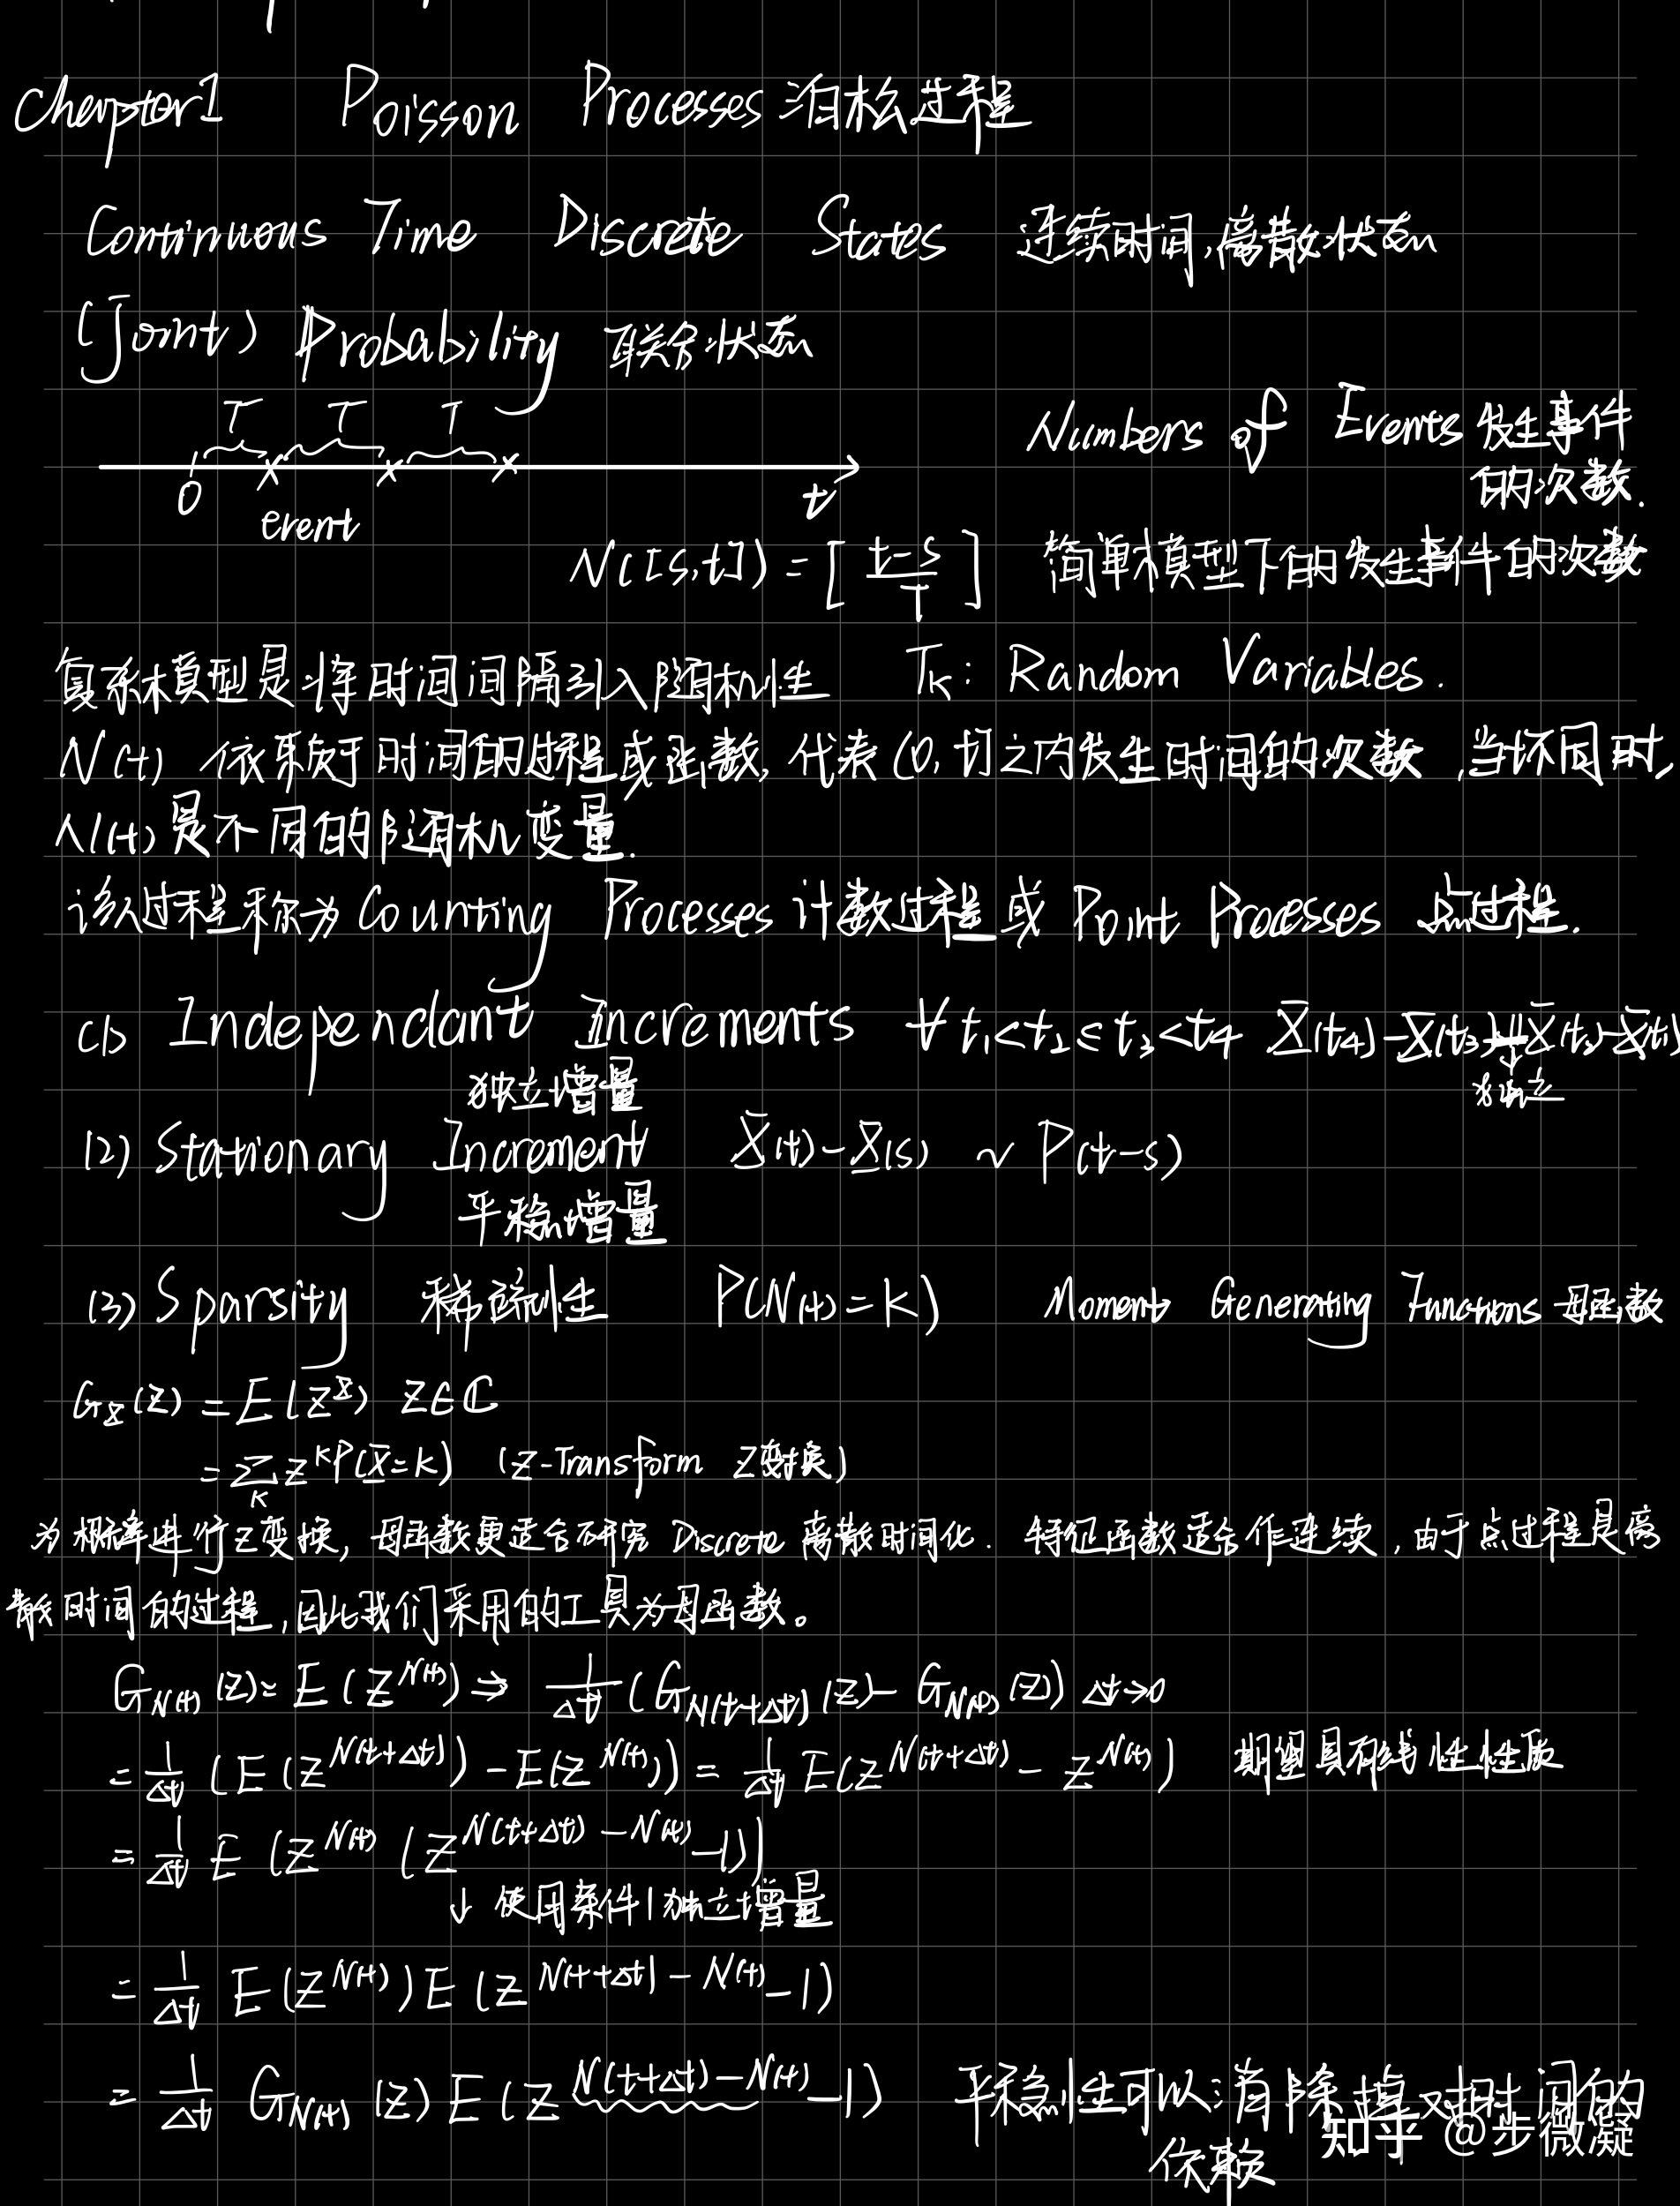 Chapter1 Poisson Processes 泊松过程
Continuous Time Discrete States 连续时间,离散状态
(Joint) Probability 联合状态
T T T
Numbers of Events 发生事件
的次数.
0 t
event
N([s,t]) = [ (t-s)/T ] 简单模型下的发生事件的次数
复杂模型是将时间间隔引入随机性 T_K: Random Variables.
N(t) 依赖于时间的过程或函数, 代表 (0, t] 之内发生时间的次数, 当t不同时,
N(t) 是不同的随机变量.
该过程称为 Counting Processes 计数过程或 Point Processes 点过程.
(1) Independant Increments ∀ t₁<t₂≤t₃<t₄ X(t₄)-X(t₃)⫫X(t₂)-X(t₁)
独立增量 ↓独立
(2) Stationary Increment X(t)-X(s) ~ P(t-s)
平稳增量
(3) Sparsity 稀疏性 P(N(t)=K) Moment Generating Functions 母函数
G_X(z) = E(z^X) z∈ℂ
= Σ_K z^K P(X=K) (Z-Transform Z变换)
为概率进行Z变换, 母函数更适合研究 Discrete 离散时间化. 特征函数适合作连续, 由于点过程是离
散时间的过程, 因此我们采用的工具为母函数。
G_N(t)(z) = E(z^N(t)) ⇒ 1/Δt (G_N(t+Δt)(z) - G_N(t)(z)) Δt→0
= 1/Δt (E(z^N(t+Δt)) - E(z^N(t))) = 1/Δt E(z^N(t+Δt) - z^N(t)) 期望具有线性性质
= 1/Δt E(z^N(t) (z^(N(t+Δt)-N(t)) -1))
↓ 使用条件1独立增量
= 1/Δt E(z^N(t)) E(z^(N(t+Δt)-N(t)) -1)
= 1/Δt G_N(t)(z) E(z^(N(t+Δt)-N(t)) -1) 平稳性可以消除掉对时间的
依赖
知乎 @步微凝